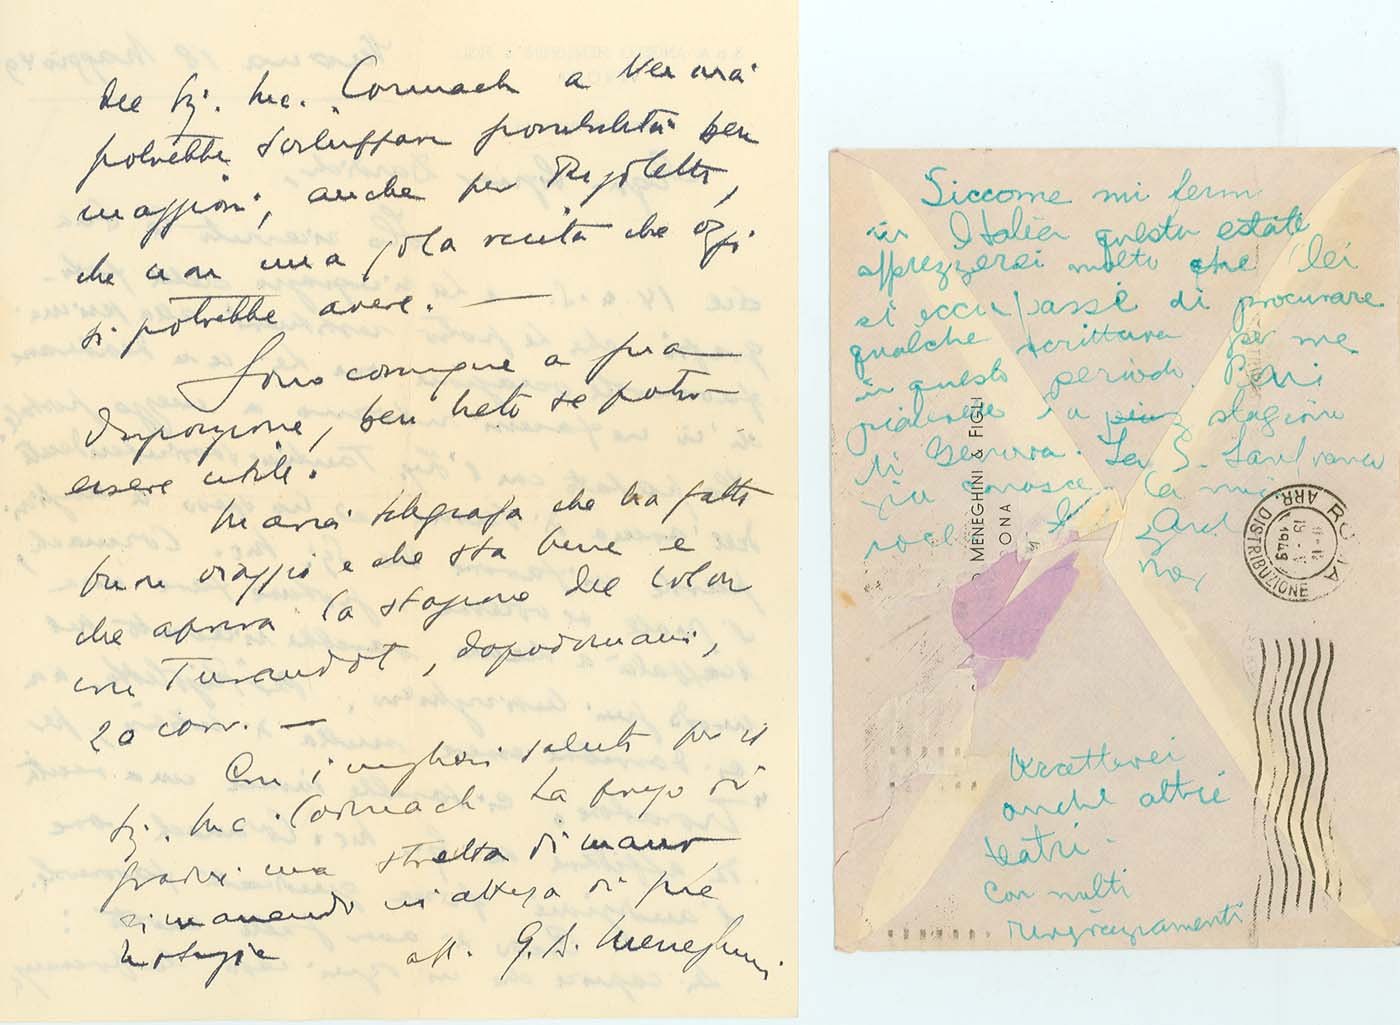 del Sig. Mc. Cormach a Verona
potrebbe sviluppare possibilità ben
maggiori, anche per Rigoletto,
che con una sola recita che oggi
si potrebbe avere. —
Sono comunque a sua
disposizione, ben lieto se potrò
essere utile.
Maria telegrafa che ha fatto
buon viaggio e che sta bene e
che aprirà la stagione del Colon
con Turandot, dopodomani,
20 corr. —
Con i migliori saluti per il
Sig. Mc. Cormach La prego di
gradire una stretta di mano
rimanendo in attesa di pre
notizie
aff. G. B. Meneghini
Siccome mi ferm
in Italia questa estate
apprezzerei molto che lei
si occupasse di procurare
qualche scrittura per me
in questo periodo. Poi mi
la più stagione
di Genova. La S.
già conosce la mia
voce
MENEGHINI & FIGLI
ONA
ROMA
ARR. DISTRIBUZIONE
19 - V
1949
Accetterei
anche altri
teatri.
Con molti
ringraziamenti